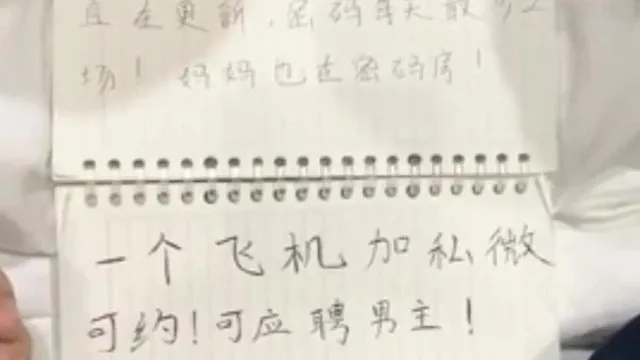 直在更新，密码每天最少2
场！妈妈也在密码房！
一个飞机加私微
可约！可应聘男主！